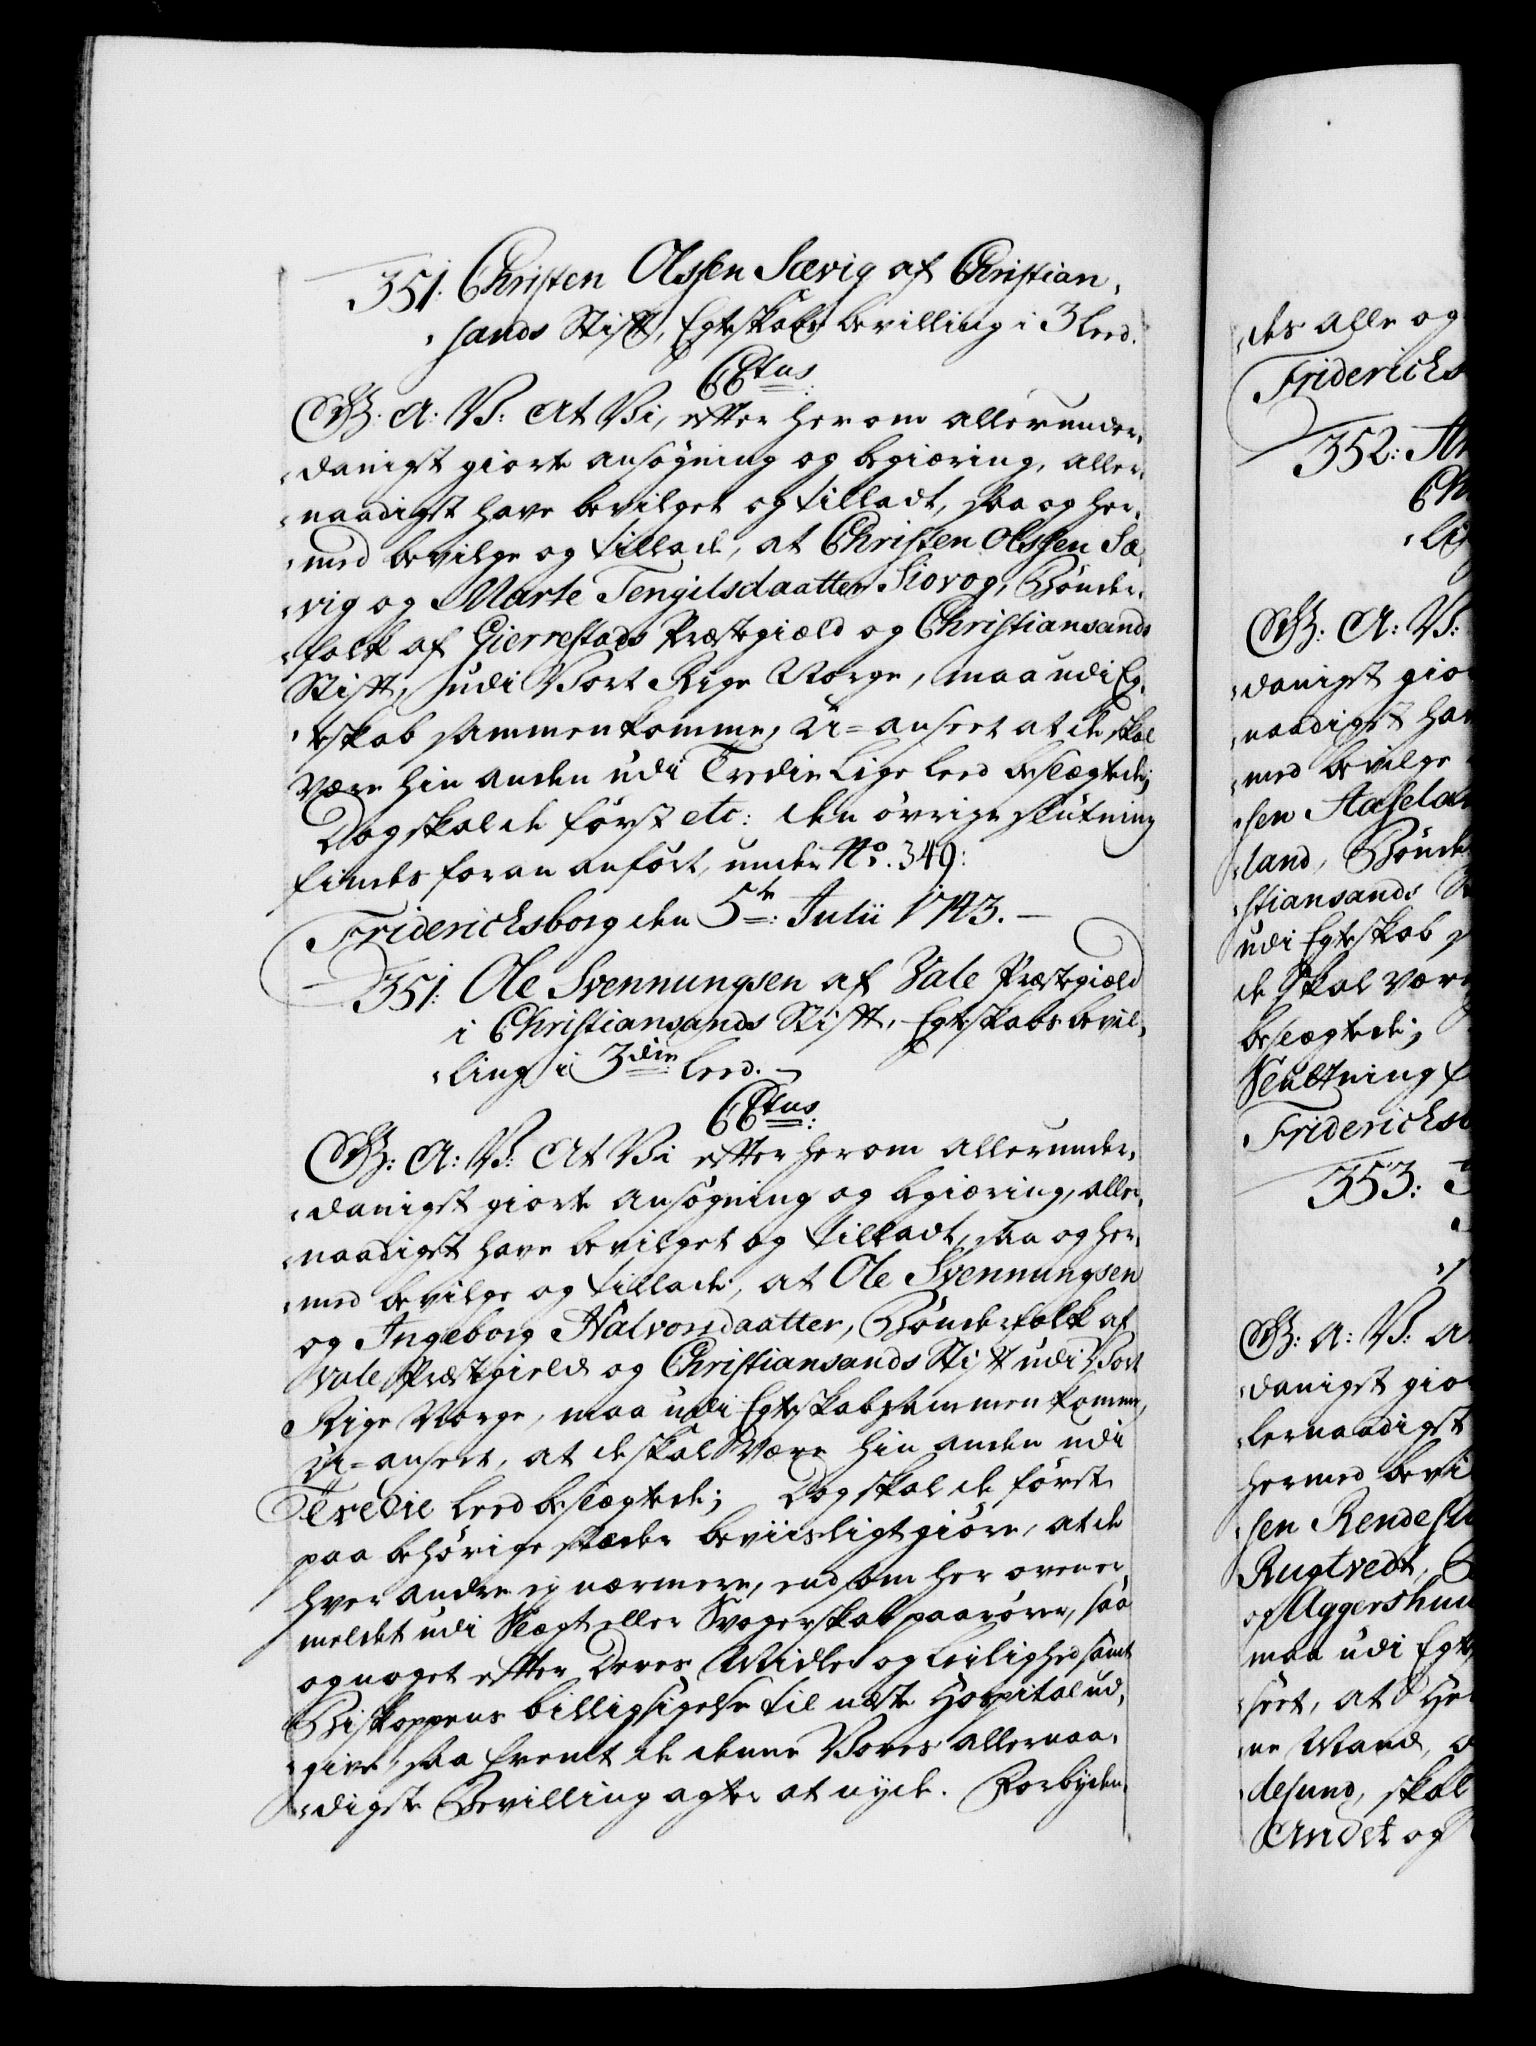 351. Christen Olssen Sævig af Christian,
,sands Stift, Egteskabs bevilling i 3 Leed.
C6tus
G. A: V: At Vi, efter herom allerunder,
,danigst giorte ansøgning og begiæring, aller,
,naadigst have bevilget og tilladt, saa og her,
,med bevilge og tillade, at Christen Olssen Sæ,
,vig og Marte Tengilsdaatter Siovog, Bønder,
,folk af Gierrestads Præstegiæld og Christiansands
Stift, udi Vort Rige Norge, maa udi Eg,
,teskab sammenkomme, U=anseet at de skal
være hin anden udi Tredie Lige Leed beslægtede;
Dog skal de først etc: den øvrige slutning
findes foran anført, under No. 349:
Friderichsborg den 5te: Julii 1743.
351: Ole Svennungsen af Vale Præstegiæld
i Christiansands Stift, Egteskabs bevil,
,ling i 3die Leed.
C6tus
G: A: V: At Vi efter herom allerunder,
,danigst giorte ansøgning og begiæring, aller,
,naadigst have bevilget og tilladt, saa og her,
,med bevilge og tillade, at Ole Svennungsen
og Ingeborg Halvorsdaatter, Bønderfolk af
Vale Præstegield og Christiansands Stift udi Vort
Rige Norge, maa udi Egteskab sammenkomme,
U=anseet, at de skal være hin anden udi
Tredie Leed beslægtede; Dog skal de først
paa behørige stæder beviisligt giøre, at de
hver andre ej nærmere, end som her oven er
meldet udi Slægt eller Svogerskab paarører, saa
og noget efter Deres Midler og Leilighed samt
Biskoppens billigsigelse til næste Hospital ud,
,give, saa fremt de denne Vores allernaa,
,digste Bevilling agter at nyde. Forbyden,
,des alle og
Friderichs
352: 
G: A: V:
,danigst gio
,naadigst ha
,med bevilge
,sen
,land, Bønde
,stiansands S
udi Egteskab s
de skal være
beslægtede;
Slutning f
Friderichsb
353:
G: A: V: A
,danigst gio
,lernaadigst
hermed bevi
,sen
Rugtvedt, B
og Aggershuu
maa udi Egte
,seet, at He
,ne Mand, o
,desund, skal
Andet og